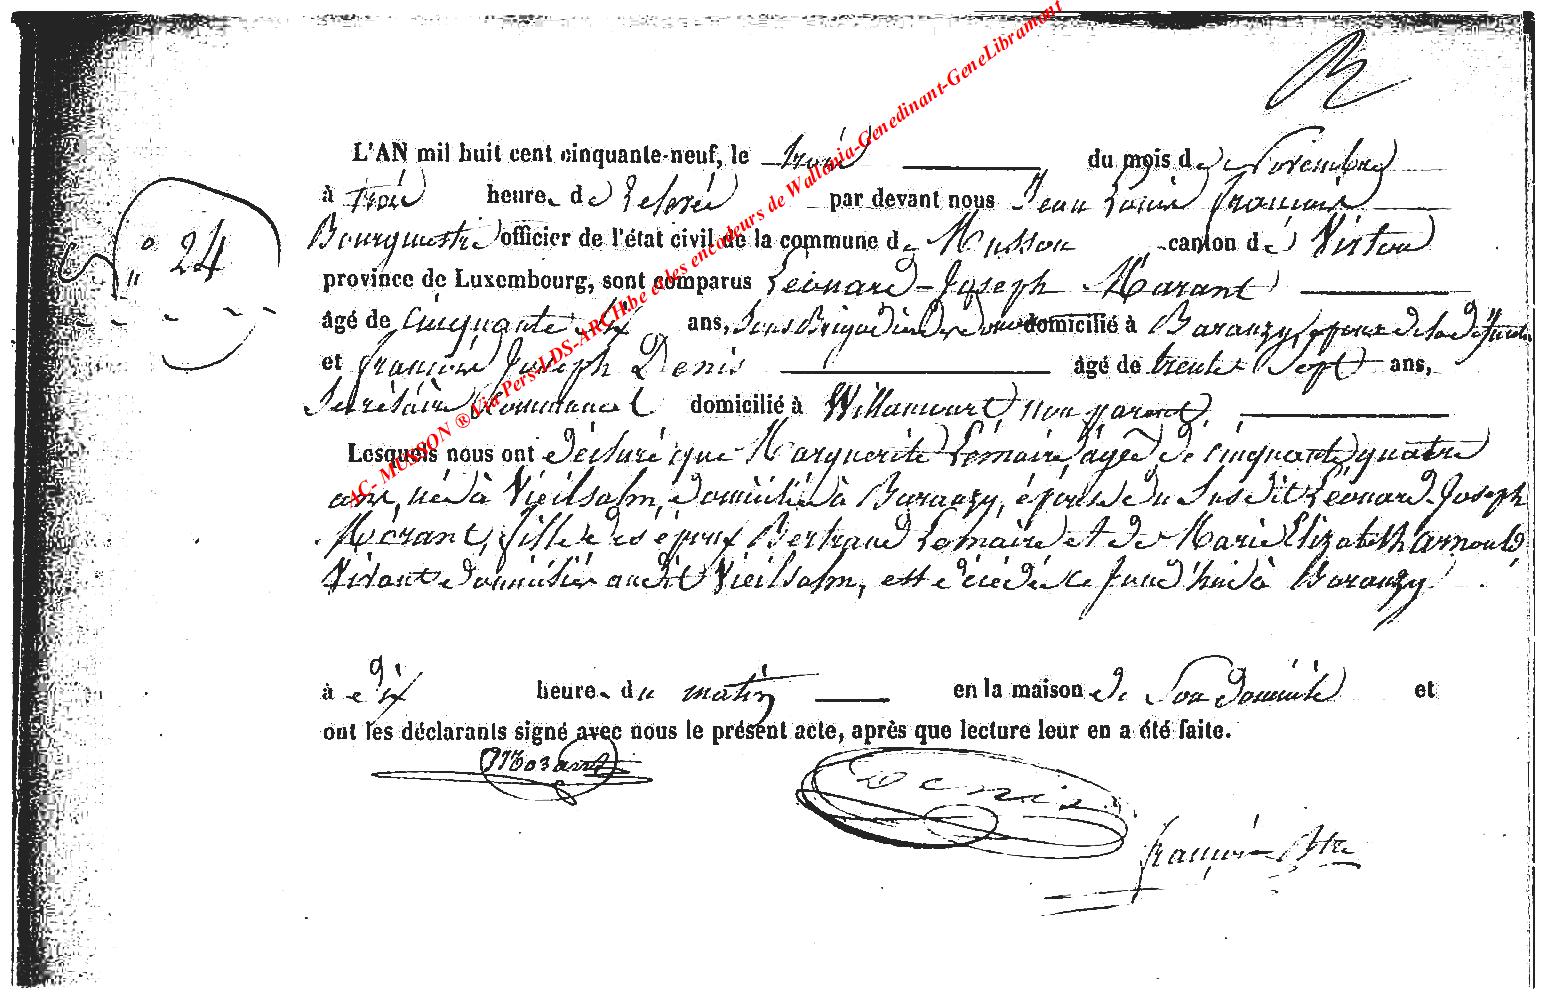 L'AN mil huit cent cinquante-neuf, le trois du mois de Novembre
à trois heures de relevée par devant nous Jean Louis François
Bourgmestre officier de l'état civil de la commune de Musson canton de Virton
N° 24
province de Luxembourg, sont comparus Léonard-Joseph Marant
âgé de cinquante six ans, Sous Brigadier de domicilié à Baranzy, époux de la défunte
et François Joseph Denis âgé de trente Sept ans,
Secrétaire Communal domicilié à Willancourt non parent
Lesquels nous ont déclaré que Marguerite Lemaire, agée de cinquante quatre
ans, née à Vieilsalm, domiciliée à Baranzy, épouse du Susdit Léonard-Joseph
Morant, fille des époux Bertrand Lemaire et de Marie Elizabeth Arnould
Vivant domiciliés audit Vieilsalm, est décédée ce jourd'hui à Baranzy
à dix heures du matin en la maison de Son domicile et
ont les déclarants signé avec nous le présent acte, après que lecture leur en a été faite.
Morant
Denis
François Btre
AC- MUSSON ® Via Pers-LDS-ARCHbe et les encodeurs de Wallonia-Genedinant-GeneLibramont